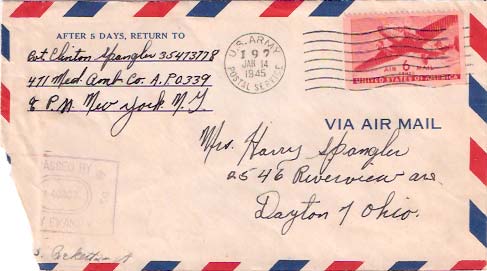 AFTER 5 DAYS, RETURN TO
Pvt Clinton Spangler 35473778
471 Med. Amb Co. A.P.O 339
% P.M. New York N.Y
U.S. ARMY
192
JAN 14
1945
POSTAL SERVICE
AIR 6¢ MAIL
UNITED STATES OF AMERICA
VIA AIR MAIL
Mrs. Harry Spangler
2546 Riverview ave.
Dayton 7 Ohio.
PASSED BY